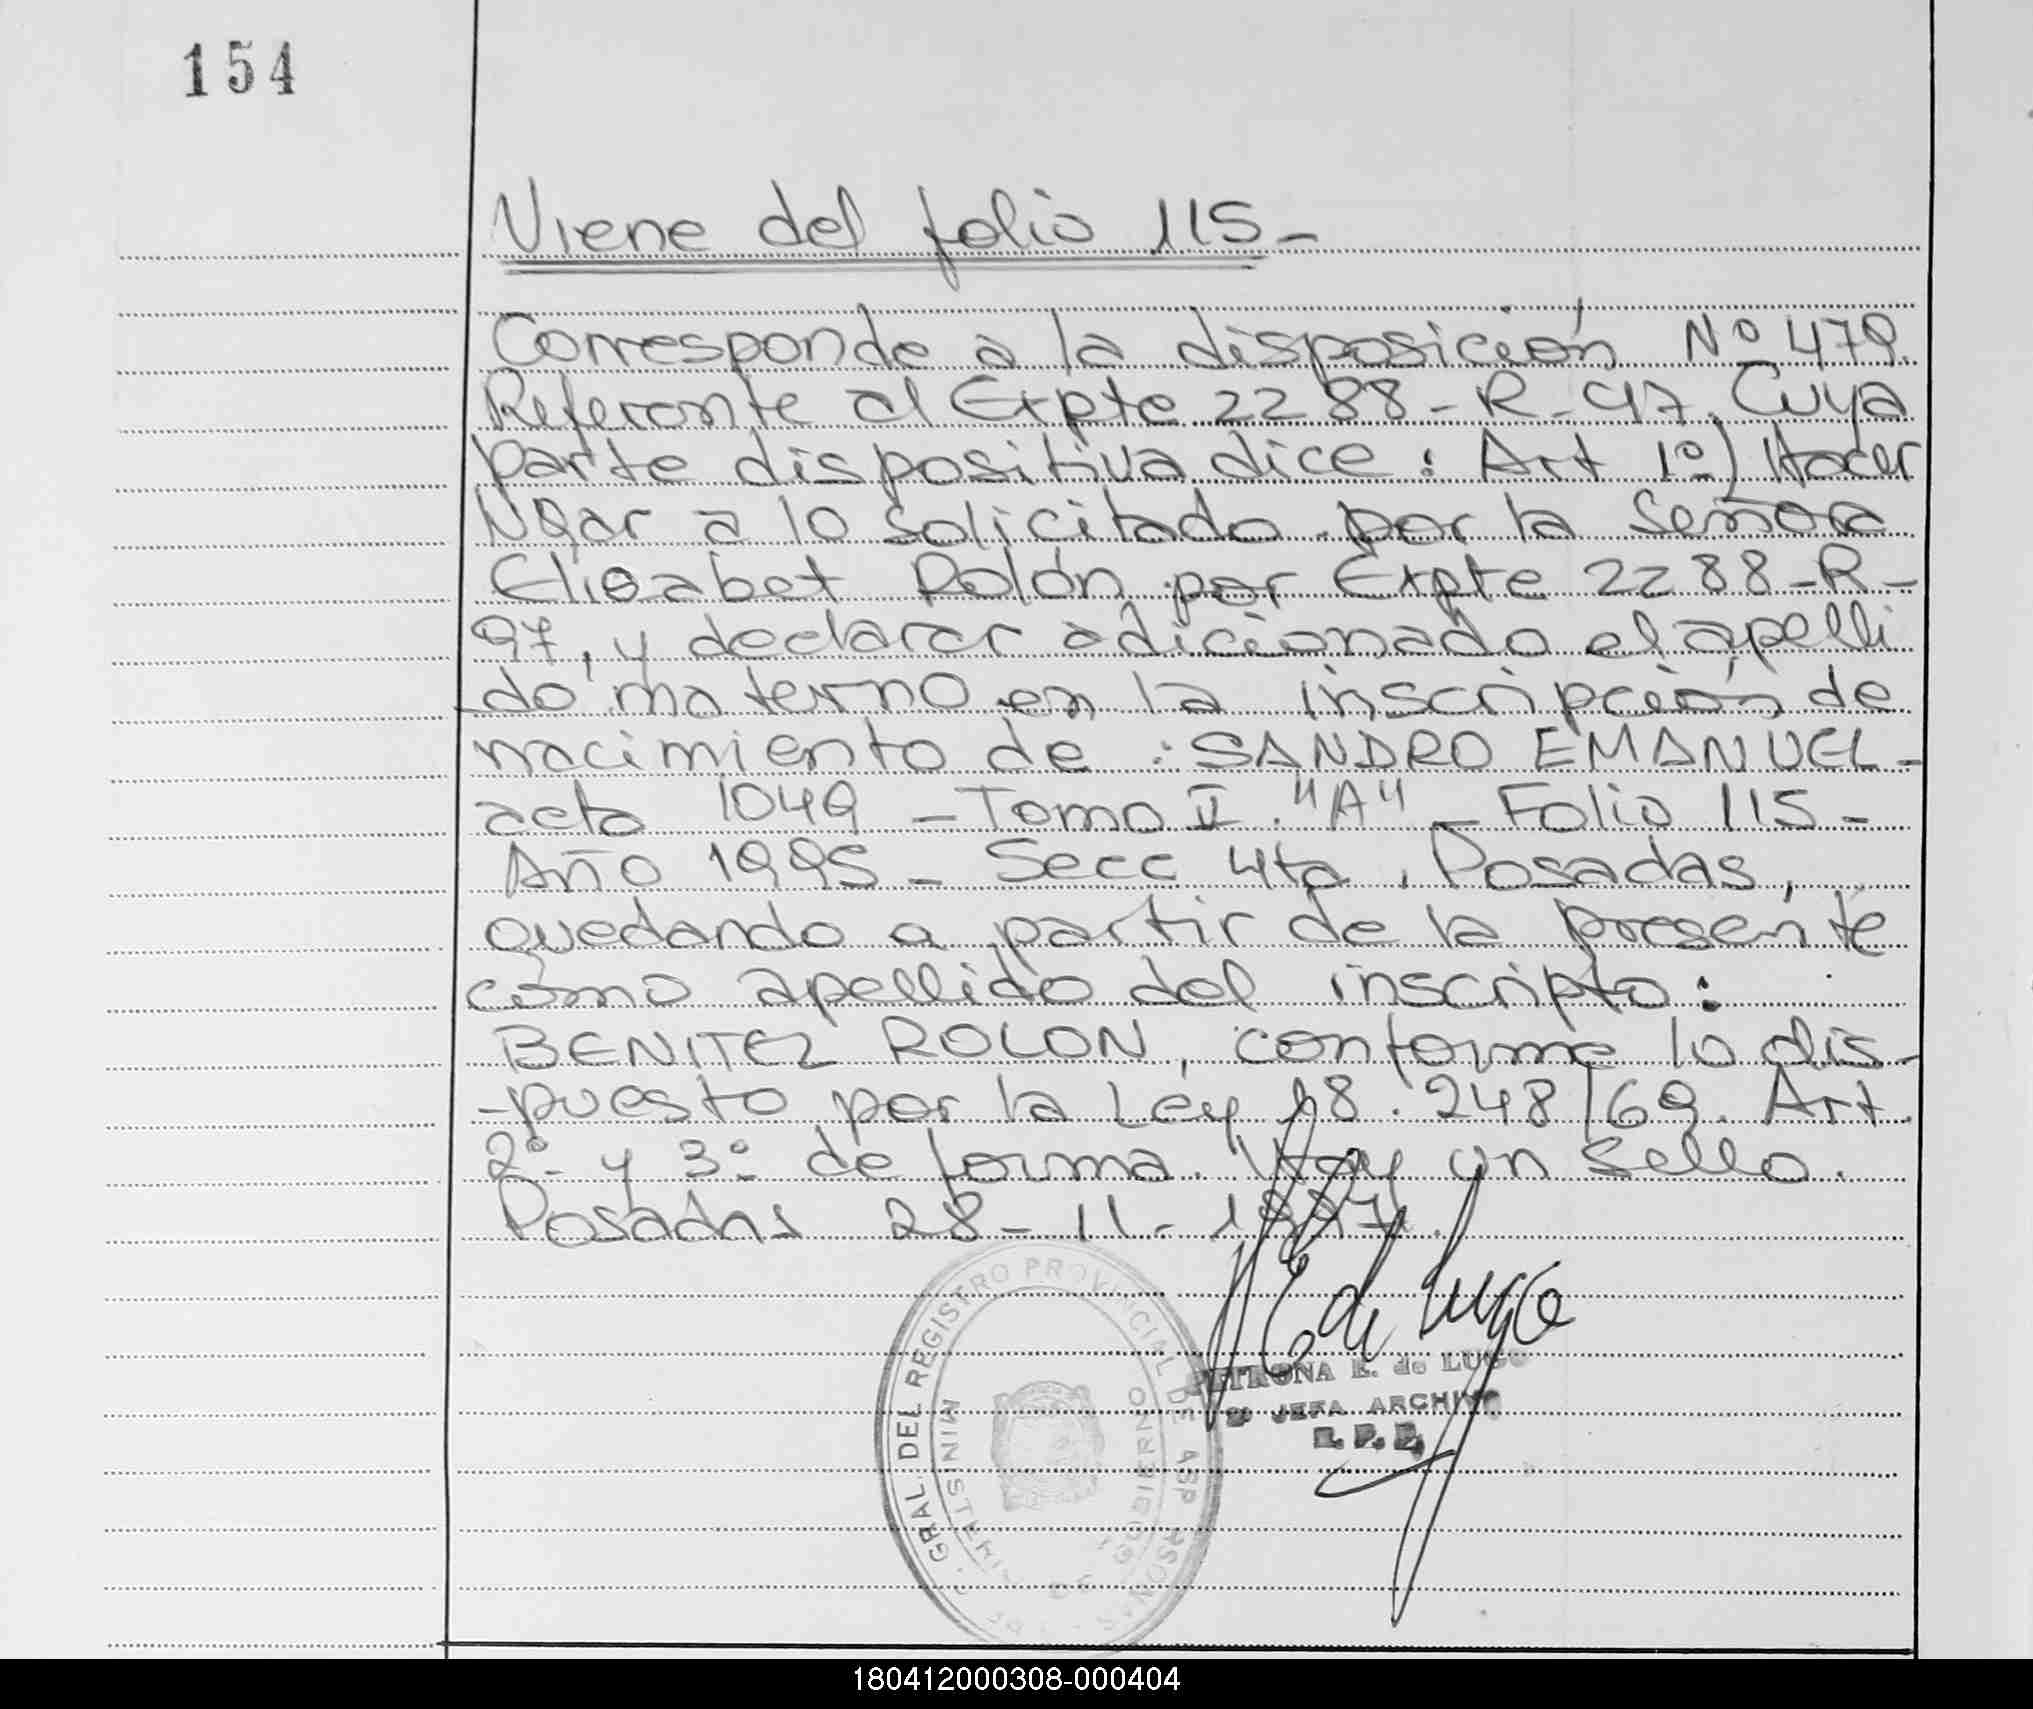 154
Viene del folio 115-
Corresponde a la disposición Nº 479.
Referente al Expte 2288-R-97. Cuya
parte dispositiva dice: Art 1º) Hacer
lugar a lo solicitado por la Señora
Elisabet Rolón por Expte 2288-R-
97, y declarar adicionado el apelli
do materno en la inscripción de
nacimiento de: SANDRO EMANUEL-
acta 1049 - Tomo II. "A" - Folio 115-
Año 1995 - Secc 4ta. Posadas,
quedando a partir de la presente
como apellido del inscripto:
BENITEZ ROLON, conforme lo dis-
-puesto por la Ley 18.248/69. Art.
2º y 3º de forma. Hay un sello.
Posadas 28-11-1997.
GRAL DEL REGISTRO PROVINCIAL DE
MINISTERIO DE GOBIERNO
PETRONA E. de LUGO
2º JEFA ARCHIVO